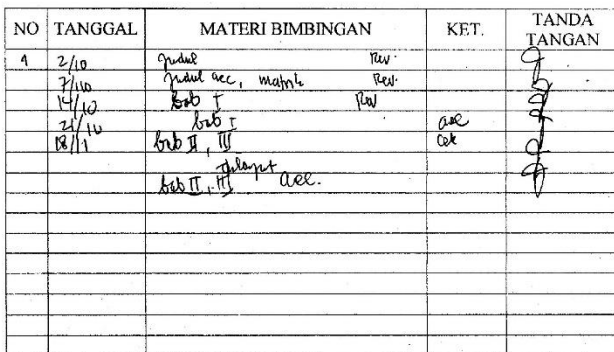 NO TANGGAL MATERI BIMBINGAN KET. TANDA TANGAN
1 2/10 Judul Rev.
7/10 Judul acc, matrik Rev.
14/10 bab I Rev
21/10 bab I acc
18/11 bab II, III Cek
bab II, III acc.